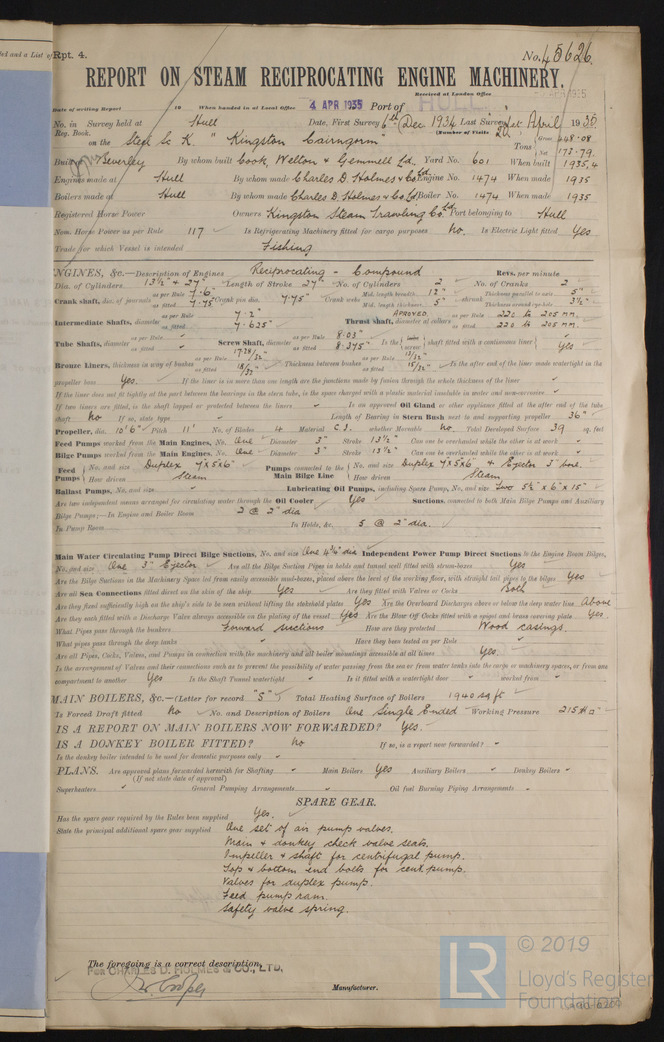 ed and a List of
Rpt. 4.
No. 45626.
REPORT ON STEAM RECIPROCATING ENGINE MACHINERY.
Received at London Office
Date of writing Report 19 When handed in at Local Office 4 APR 1935 Port of HULL
No. in Survey held at Hull Date, First Survey 6th Dec 1934 Last Survey April 1935
Reg. Book. (Number of Visits 20)
on the Steel Sc K. "Kingston Cairngorm" Tons Gross 448.08
Net 173.79
Built at Beverley By whom built Cook, Welton & Gemmell Ld. Yard No. 601 When built 1935.4
Engines made at Hull By whom made Charles D. Holmes & Co Ld Engine No. 1474 When made 1935
Boilers made at Hull By whom made Charles D. Holmes & Co Ld Boiler No. 1474 When made 1935
Registered Horse Power Owners Kingston Steam Trawling Co. Ld Port belonging to Hull
Nom. Horse Power as per Rule 117 Is Refrigerating Machinery fitted for cargo purposes No. Is Electric Light fitted Yes
Trade for which Vessel is intended Fishing
ENGINES, &c.—Description of Engines Reciprocating - Compound Revs. per minute
Dia. of Cylinders 13½" + 27" Length of Stroke 27" No. of Cylinders 2 No. of Cranks 2
Crank shaft, dia. of journals as per Rule 7.6" as fitted 7.75" Crank pin dia. 7.75" Crank webs Mid. length breadth 12" Mid. length thickness 5" shrunk Thickness parallel to axis 5" Thickness around eye-hole 3½"
Intermediate Shafts, diameter as per Rule 7.2" as fitted 7.625" Thrust shaft, diameter at collars APROVED as per Rule 220 to 205 mm. as fitted 220 to 205 mm.
Tube Shafts, diameter as per Rule as fitted Screw Shaft, diameter as per Rule 8.03" as fitted 8.375" Is the screw shaft fitted with a continuous liner Yes
Bronze Liners, thickness in way of bushes as per Rule as fitted 18/32" Thickness between bushes as per Rule 13/32" as fitted 15/32" Is the after end of the liner made watertight in the
propeller boss Yes. If the liner is in more than one length are the junctions made by fusion through the whole thickness of the liner
If the liner does not fit tightly at the part between the bearings in the stern tube, is the space charged with a plastic material insoluble in water and non-corrosive
If two liners are fitted, is the shaft lapped or protected between the liners Is an approved Oil Gland or other appliance fitted at the after end of the tube
shaft No If so, state type Length of Bearing in Stern Bush next to and supporting propeller 36"
Propeller, dia. 10'6" Pitch 11' No. of Blades 4 Material C.I. whether Moveable No. Total Developed Surface 39 sq. feet
Feed Pumps worked from the Main Engines, No. One Diameter 3" Stroke 13½" Can one be overhauled while the other is at work
Bilge Pumps worked from the Main Engines, No. One Diameter 3" Stroke 13½" Can one be overhauled while the other is at work
Feed Pumps No. and size Duplex 7"x5"x6" How driven Steam Pumps connected to the Main Bilge Line No. and size Duplex 7x5x6 + Ejector 3" bore. How driven Steam
Ballast Pumps, No. and size Lubricating Oil Pumps, including Spare Pump, No. and size Two 5½" x 6" x 15"
Are two independent means arranged for circulating water through the Oil Cooler Yes Suctions, connected to both Main Bilge Pumps and Auxiliary
Bilge Pumps;—In Engine and Boiler Room 2 @ 2" dia
In Pump Room In Holds, &c. 5 @ 2" dia.
Main Water Circulating Pump Direct Bilge Suctions, No. and size One 4¾" dia Independent Power Pump Direct Suctions to the Engine Room Bilges,
No. and size One 3" Ejector Are all the Bilge Suction Pipes in holds and tunnel well fitted with strum-boxes Yes
Are the Bilge Suctions in the Machinery Space led from easily accessible mud-boxes, placed above the level of the working floor, with straight tail pipes to the bilges Yes
Are all Sea Connections fitted direct on the skin of the ship Yes Are they fitted with Valves or Cocks Both
Are they fixed sufficiently high on the ship's side to be seen without lifting the stokehold plates Yes Are the Overboard Discharges above or below the deep water line Above
Are they each fitted with a Discharge Valve always accessible on the plating of the vessel Yes Are the Blow Off Cocks fitted with a spigot and brass covering plate Yes.
What Pipes pass through the bunkers Forward suctions How are they protected Wood casings.
What pipes pass through the deep tanks Have they been tested as per Rule
Are all Pipes, Cocks, Valves, and Pumps in connection with the machinery and all boiler mountings accessible at all times Yes.
Is the arrangement of Valves and their connections such as to prevent the possibility of water passing from the sea or from water tanks into the cargo or machinery spaces, or from one
compartment to another Yes Is the Shaft Tunnel watertight Is it fitted with a watertight door worked from
MAIN BOILERS, &c.—(Letter for record "S") Total Heating Surface of Boilers 1940 sq ft
Is Forced Draft fitted No No. and Description of Boilers One Single Ended Working Pressure 215
IS A REPORT ON MAIN BOILERS NOW FORWARDED? Yes.
IS A DONKEY BOILER FITTED? No If so, is a report now forwarded?
Is the donkey boiler intended to be used for domestic purposes only
PLANS. Are approved plans forwarded herewith for Shafting Main Boilers Yes Auxiliary Boilers Donkey Boilers
(If not state date of approval)
Superheaters General Pumping Arrangements Oil fuel Burning Piping Arrangements
SPARE GEAR.
Has the spare gear required by the Rules been supplied Yes.
State the principal additional spare gear supplied One set of air pump valves.
Main & donkey check valve seats.
Impeller & shaft for centrifugal pump.
Top & bottom end bolts for cent. pump.
Valves for duplex pump.
Feed pump ram.
Safety valve spring.
The foregoing is a correct description,
For CHARLES D. HOLMES & CO., LTD.
Manufacturer.
LR © 2019
Lloyd's Register
Foundation